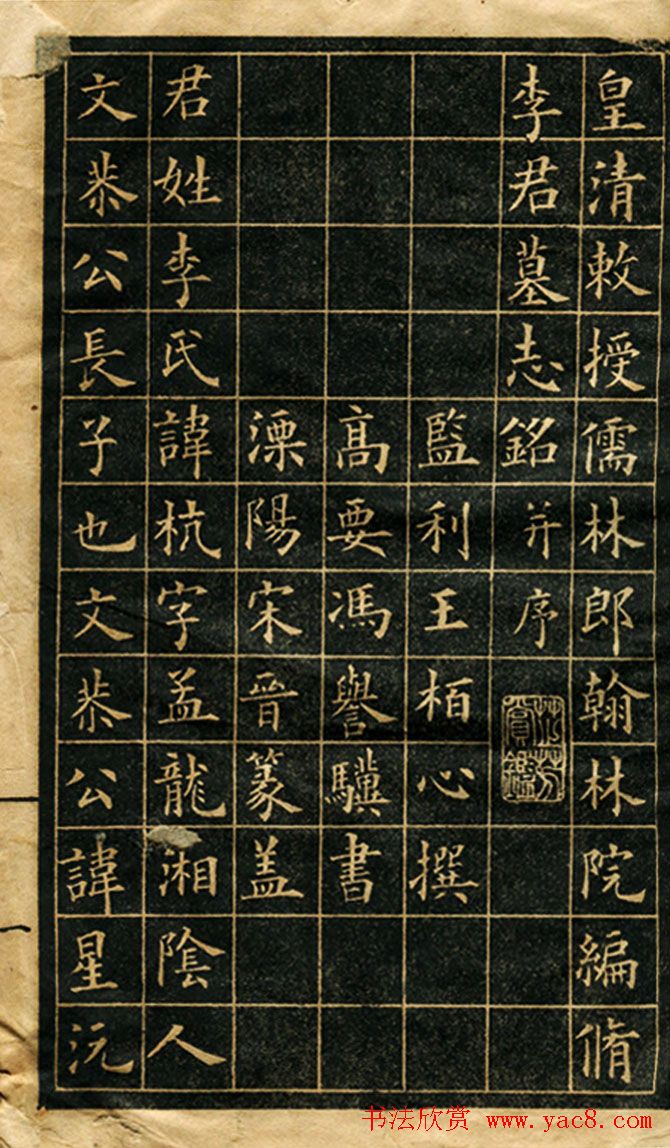 皇清敕授儒林郎翰林院編脩
李君墓志銘并序
監利王栢心撰
高要馮譽驥書
溧陽宋晉篆盖
君姓李氏諱杭字孟龍湘陰人
文恭公長子也文恭公諱星沅
书法欣赏 www.yac8.com